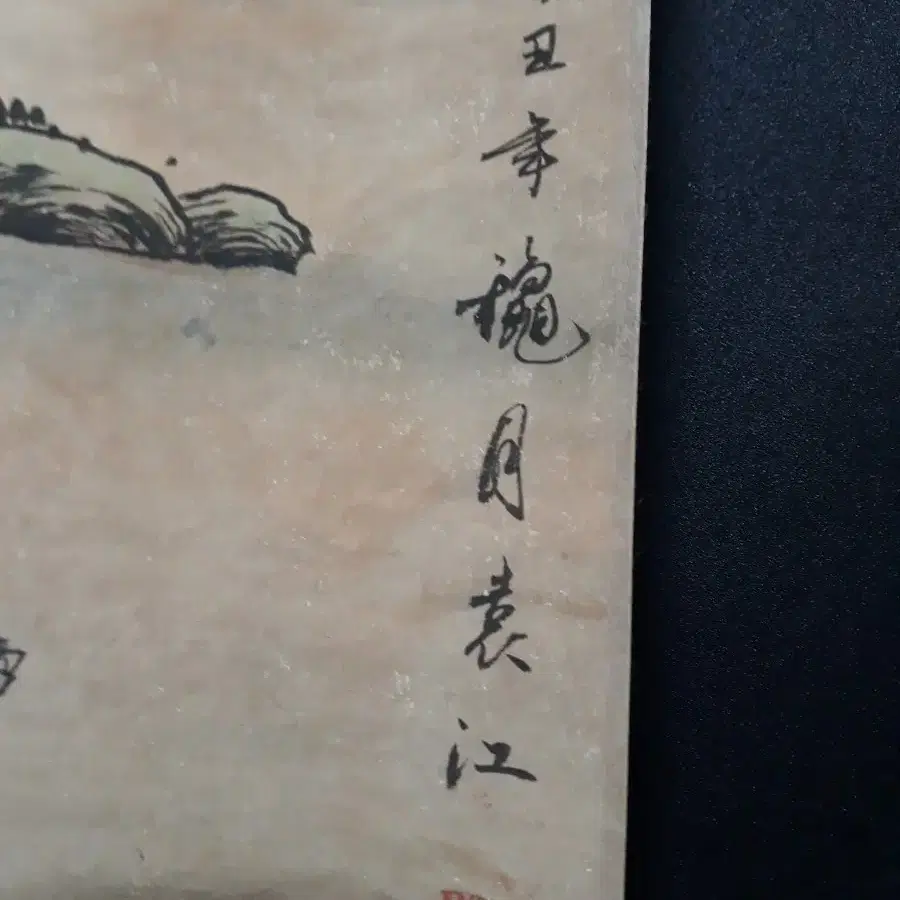 丑年龝月袁江